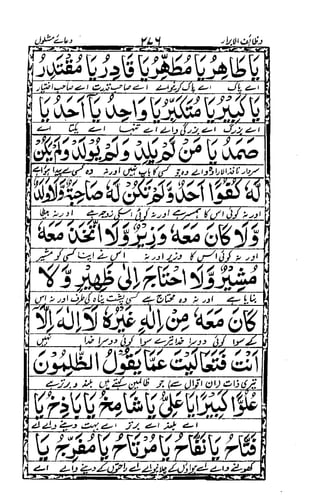 وظائف الابرار ۲۷۶ دعائے مشلول
يَا طَاهِرُ يَا مُطَهِّرُ يَا قَادِرُ يَا مُقْتَدِرُ
اے پاک اے پاک کرنیوالے اے صاحب قدرت اے صاحب اختیار
يَا كَبِيْرُ يَا مُتَكَبِّرُ يَا وَاحِدُ يَا اَحَدُ يَا
اے بزرگ اے بزرگی والے اے تنہا اے یکتا اے
صَمَدُ يَا مَنْ لَمْ يَلِدْ وَلَمْ يُوْلَدْ وَلَمْ يَكُنْ
وہ جو کسی کا باپ نہیں اور نہ وہ کسی سے پیدا ہوا ہے
لَهُ كُفُوًا اَحَدٌ وَلَمْ تَكُنْ لَهُ صَاحِبَةٌ وَّلَا وَلَدٌ
اور نہ کوئی اس کا ہمسر ہے اور نہ کوئی اسکی زوجہ ہے اور نہ بیٹا
وَّلَا كَانَ مَعَهُ وَزِيْرٌ وَّلَا اتَّخَذَ مَعَهُ
اور نہ کوئی اس کا وزیر اور نہ اس نے اپنا کسی کو مشیر
مُشِيْرًا وَّلَا احْتَاجَ اِلٰى ظَهِيْرٍ وَّلَا
بنایا ہے اور نہ وہ محتاج ہے کسی پشت پناہ کی طرف اور نہ اس
كَانَ مَعَهُ مِنْ اِلٰهٍ غَيْرُهُ لَا اِلٰهَ اِلَّا
کے سوا کوئی دوسرا خدا ہے تیرے سوا کوئی دوسرا خدا نہیں
اَنْتَ فَتَعَالَيْتَ عَمَّا يَقُوْلُ الظّٰلِمُوْنَ
تیری ذات (ان اقوال سے) جو ظالمین کہتے ہیں بلند و برتر ہے
عُلُوًّا كَبِيْرًا يَا عَلِيُّ يَا شَامِخُ يَا بَاذِخُ يَا
اے بلند اے برتر اے بہت دینے والے اے
فَتَّاحُ يَا نَفَّاحُ يَا مُرْتَاحُ يَا مُفَرِّجُ يَا
کھولنے والے اے ہواؤں کے چلانیوالے اے راحتوں کے دینے والے اے